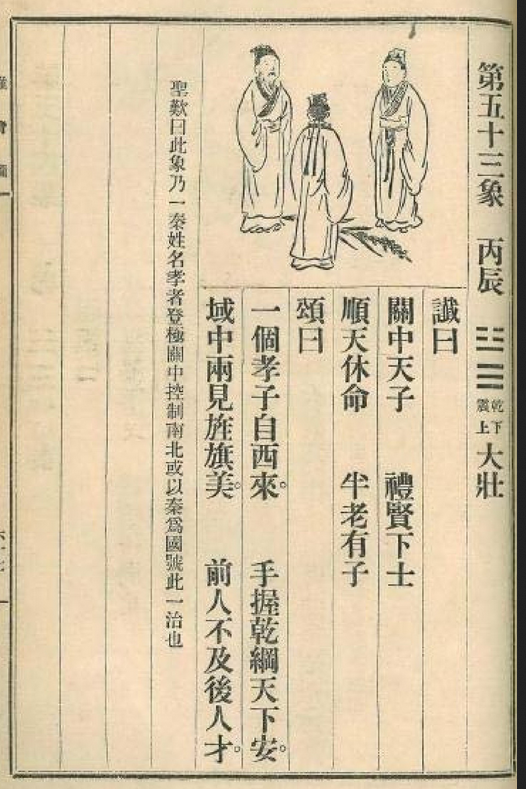 第五十三象 丙辰 ䷡ 乾下震上 大壯
讖曰
關中天子 禮賢下士
順天休命 半老有子
頌曰
一個孝子自西來。 手握乾綱天下安。
域中兩見旌旗美。 前人不及後人才。
聖歎曰此象乃一秦姓名孝者登極關中控制南北或以秦爲國號此一治也